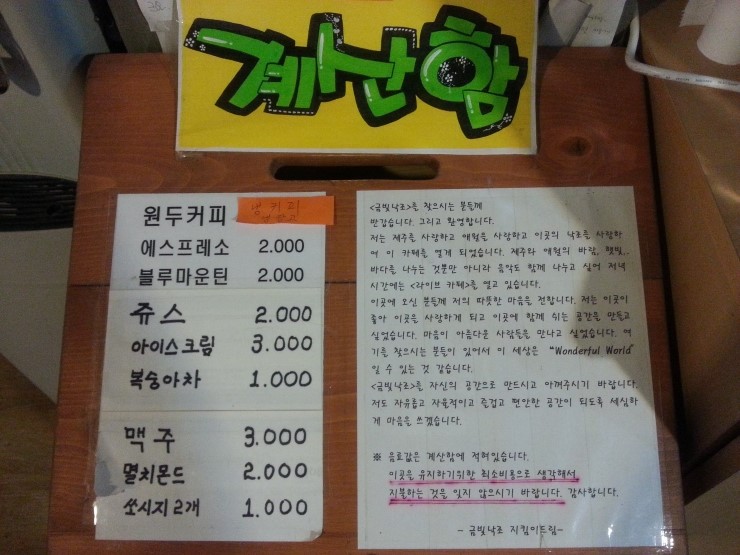 계산함
원두커피 냉커피
에스프레소 2.000
블루마운틴 2.000
쥬스 2.000
아이스크림 3.000
복숭아차 1.000
맥주 3.000
멸치몬드 2.000
쏘시지 2개 1.000
<금빛낙조>를 찾으시는 분들께
반갑습니다. 그리고 환영합니다.
저는 제주를 사랑하고 애월을 사랑하고 이곳의 낙조를 사랑하
여 이 카페를 열게 되었습니다. 제주와 애월의 바람, 햇빛,.
바다를 나누는 것뿐만 아니라 음악도 함께 나누고 싶어 저녁
시간에는 <라이브 카페>를 열고 있습니다.
이곳에 오신 분들께 저의 따뜻한 마음을 전합니다. 저는 이곳이
좋아 이곳을 사랑하게 되고 이곳에 함께 쉬는 공간을 만들고
싶었습니다. 마음이 아름다운 사람들을 만나고 싶었습니다. 여
기를 찾으시는 분들이 있어서 이 세상은 "Wonderful World"
일 수 있는 것 같습니다.
<금빛낙조>를 자신의 공간으로 만드시고 아껴주시기 바랍니다.
저도 자유롭고 자율적이고 즐겁고 편안한 공간이 되도록 세심하
게 마음을 쓰겠습니다.
※ 음료값은 계산함에 적혀있습니다.
이곳을 유지하기위한 최소비용으로 생각해서
지불하는 것을 잊지 않으시기 바랍니다. 감사합니다.
- 금빛낙조 지킴이드림-